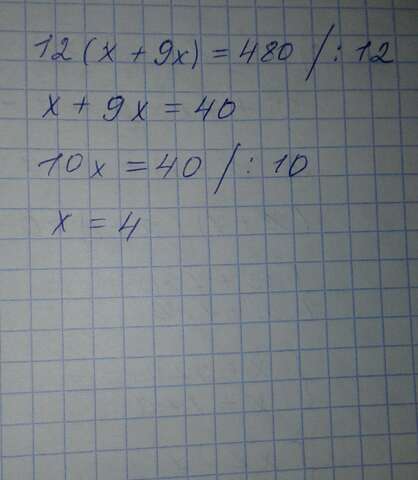 12(x + 9x) = 480 / : 12
x + 9x = 40
10x = 40 / : 10
x = 4